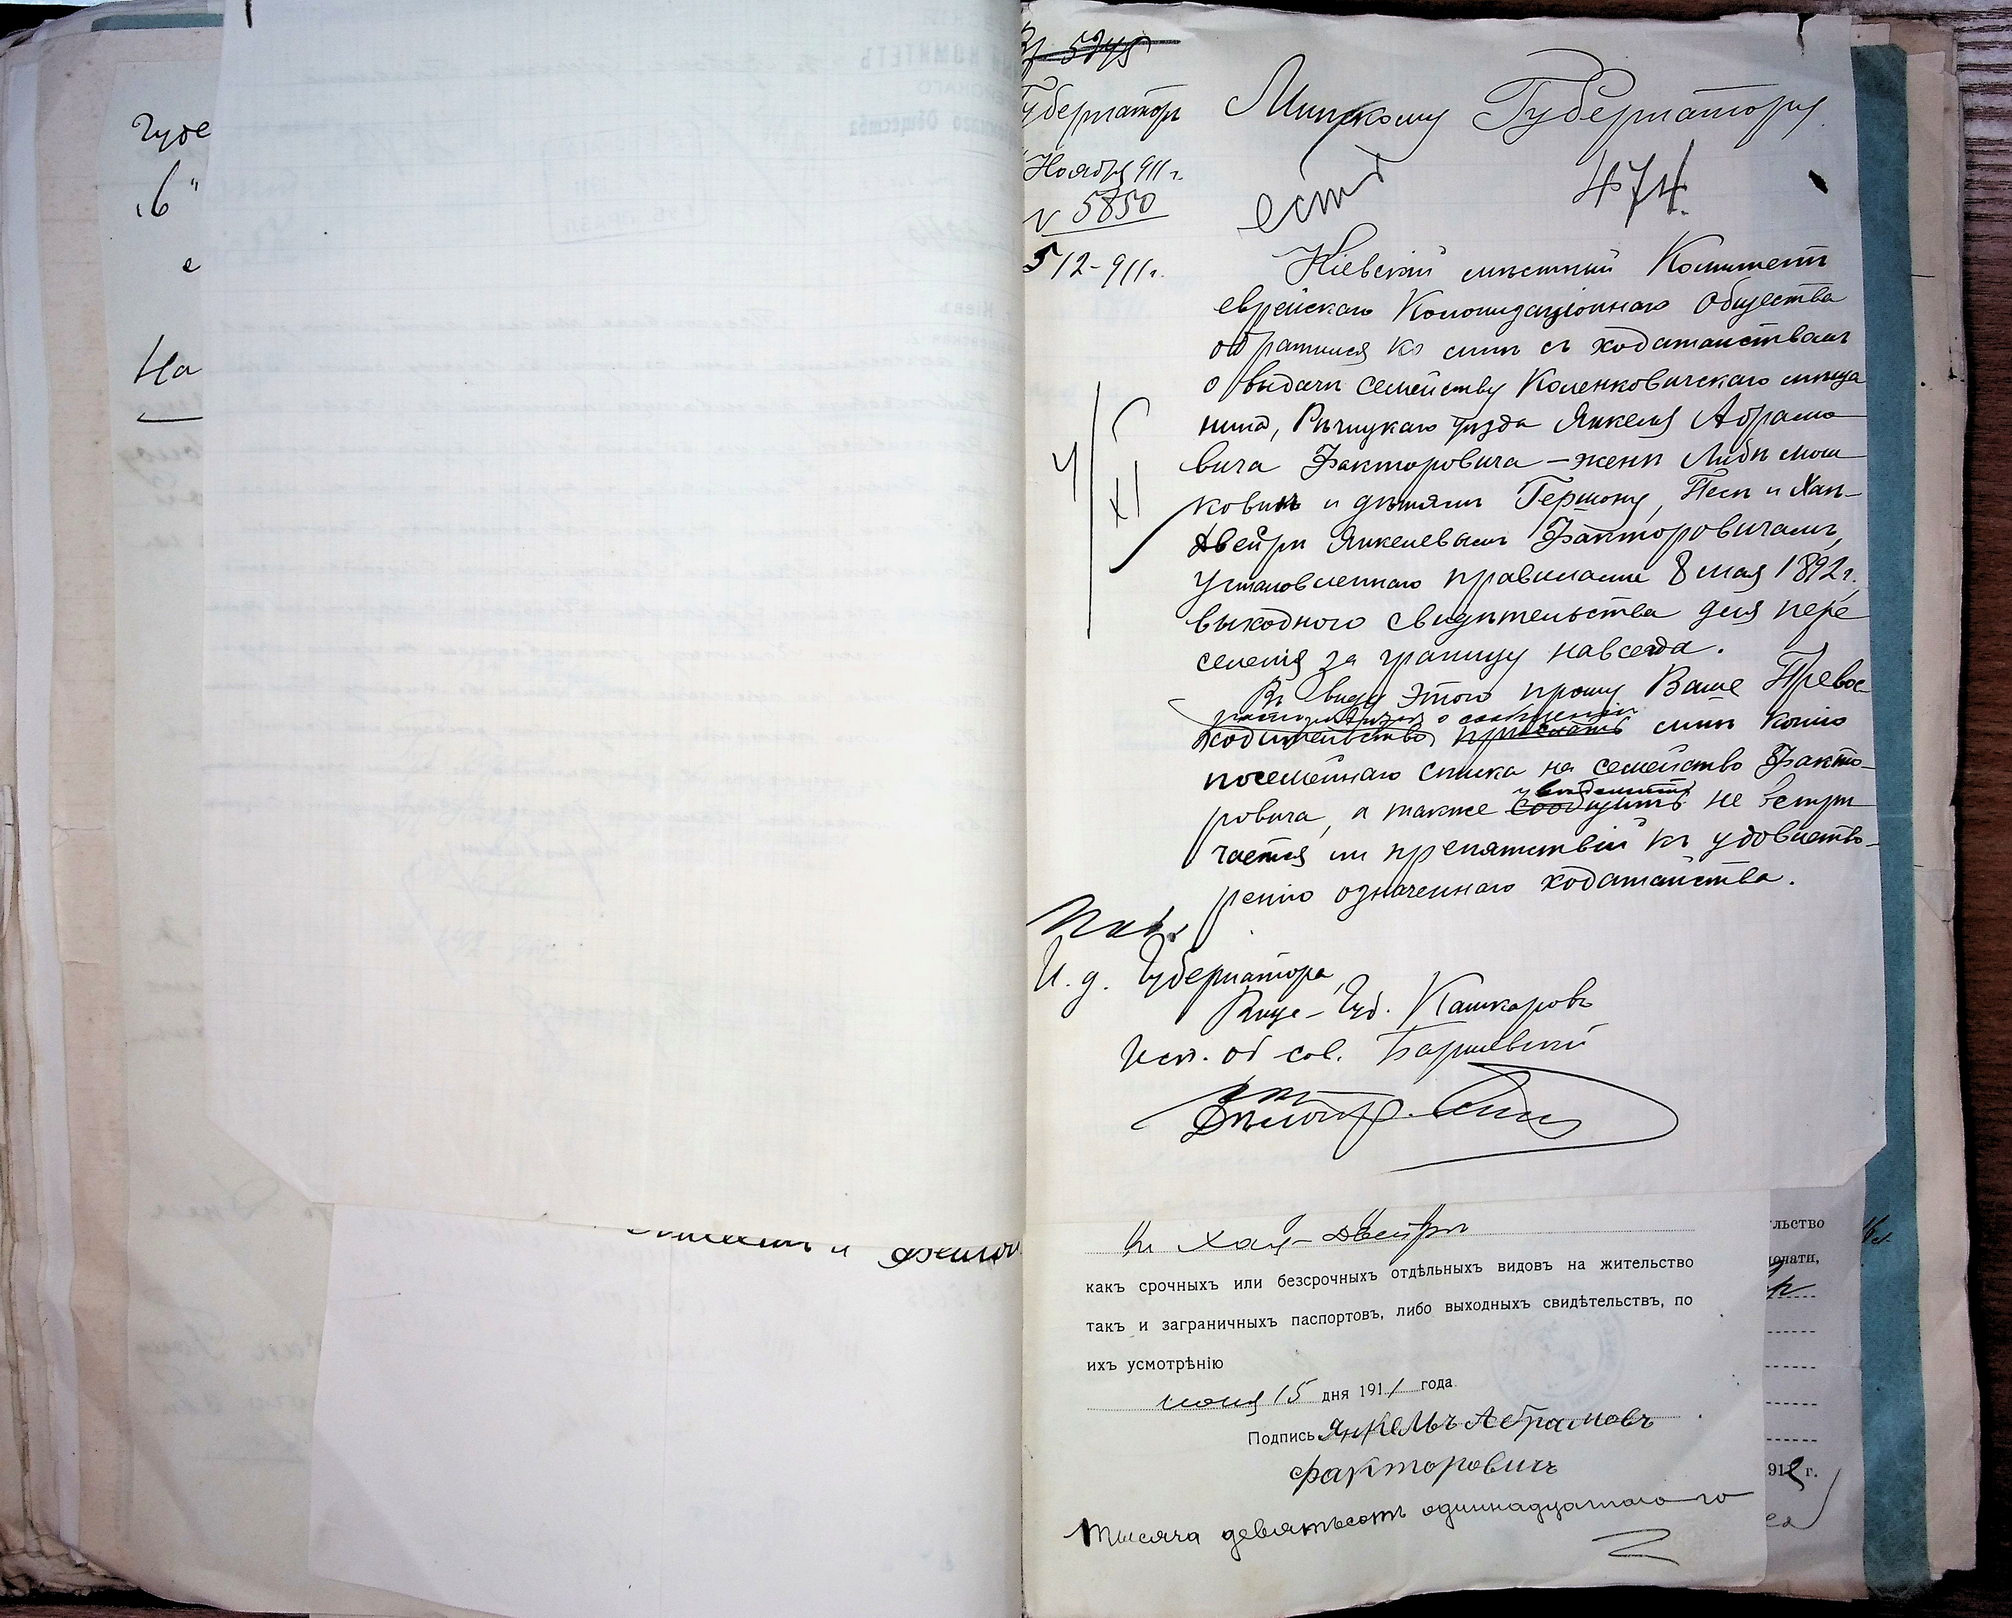 губе
„6"
е
На
5745
Губернаторъ
Ноября 911 г.
№ 5850
5/12-911 г.
Минскому Губернатору
474.
есть
Кіевскій мѣстный Комитетъ
еврейскаго Колонизаціоннаго Общества
обратился ко мнѣ съ ходатайствомъ
о выдачѣ семейству Коленковичскаго мѣща
нина, Рѣчицкаго уѣзда Янкеля Абрамо
вича Факторовича – женѣ Либѣ Мош
ковнѣ и дѣтямъ Гершону, Песѣ и Хаѣ-
Двейрѣ Янкелевымъ Факторовичамъ,
установленнаго правилами 8 мая 1892 г.
выходного свидѣтельства для пере
селенія за границу навсегда.
Въ виду этого прошу Ваше Превос
распоряженія о сообщеніи
ходительство, прислать мнѣ копію
посемейнаго списка на семейство Факто-
ровича, а также сообщить не встрѣ
чается ли препятствій къ удовлетво-
ренію означеннаго ходатайства.
И. д. Губернатора,
Вице-Губ. Кашкаровъ
Исп. об. сов.
и Хаѣ-Двейрѣ
какъ срочныхъ или безсрочныхъ отдѣльныхъ видовъ на жительство
такъ и заграничныхъ паспортовъ, либо выходныхъ свидѣтельствъ, по
ихъ усмотрѣнію
іюня 15 дня 1911 года
Подпись Янкель Абрамовъ
Факторовичъ
тысяча девятьсотъ одиннадцатаго го
льство
печати,
912 г.